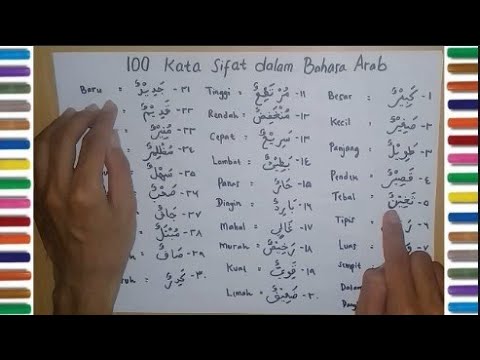 100 Kata Sifat dalam Bahasa Arab
Besar : ١- كَبِيْرٌ
Kecil : ٢- صَغِيْرٌ
Panjang : ٣- طَوِيْلٌ
Pendek : ٤- قَصِيْرٌ
Tebal : ٥- ثَخِيْنٌ
Tipis : ٦-
Luas ٧-
Sempit
Dalam
Tinggi = ١١- مُرْتَفِعٌ
Rendah = ١٢- مُنْخَفِضٌ
Cepat = ١٣- سَرِيْعٌ
Lambat = ١٤- بَطِيْءٌ
Panas = ١٥- حَارٌّ
Dingin = ١٦- بَارِدٌ
Mahal = ١٧- غَالِي
Murah = ١٨- رَخِيْصٌ
Kuat = ١٩- قَوِيٌّ
Lemah = ٢٠- ضَعِيْفٌ
Baru = ٢١- جَدِيْدٌ
٢٢- قَدِيْمٌ
٢٣- مُنِيْرٌ
٢٤- مُظْلِمٌ
٢٥- سَهْلٌ
٢٦- صَعْبٌ
٢٧- جَافٌّ
= ٢٨- مُبْتَلٌّ
= ٢٩- صَافٌ
= ٣٠- كَدِرٌ